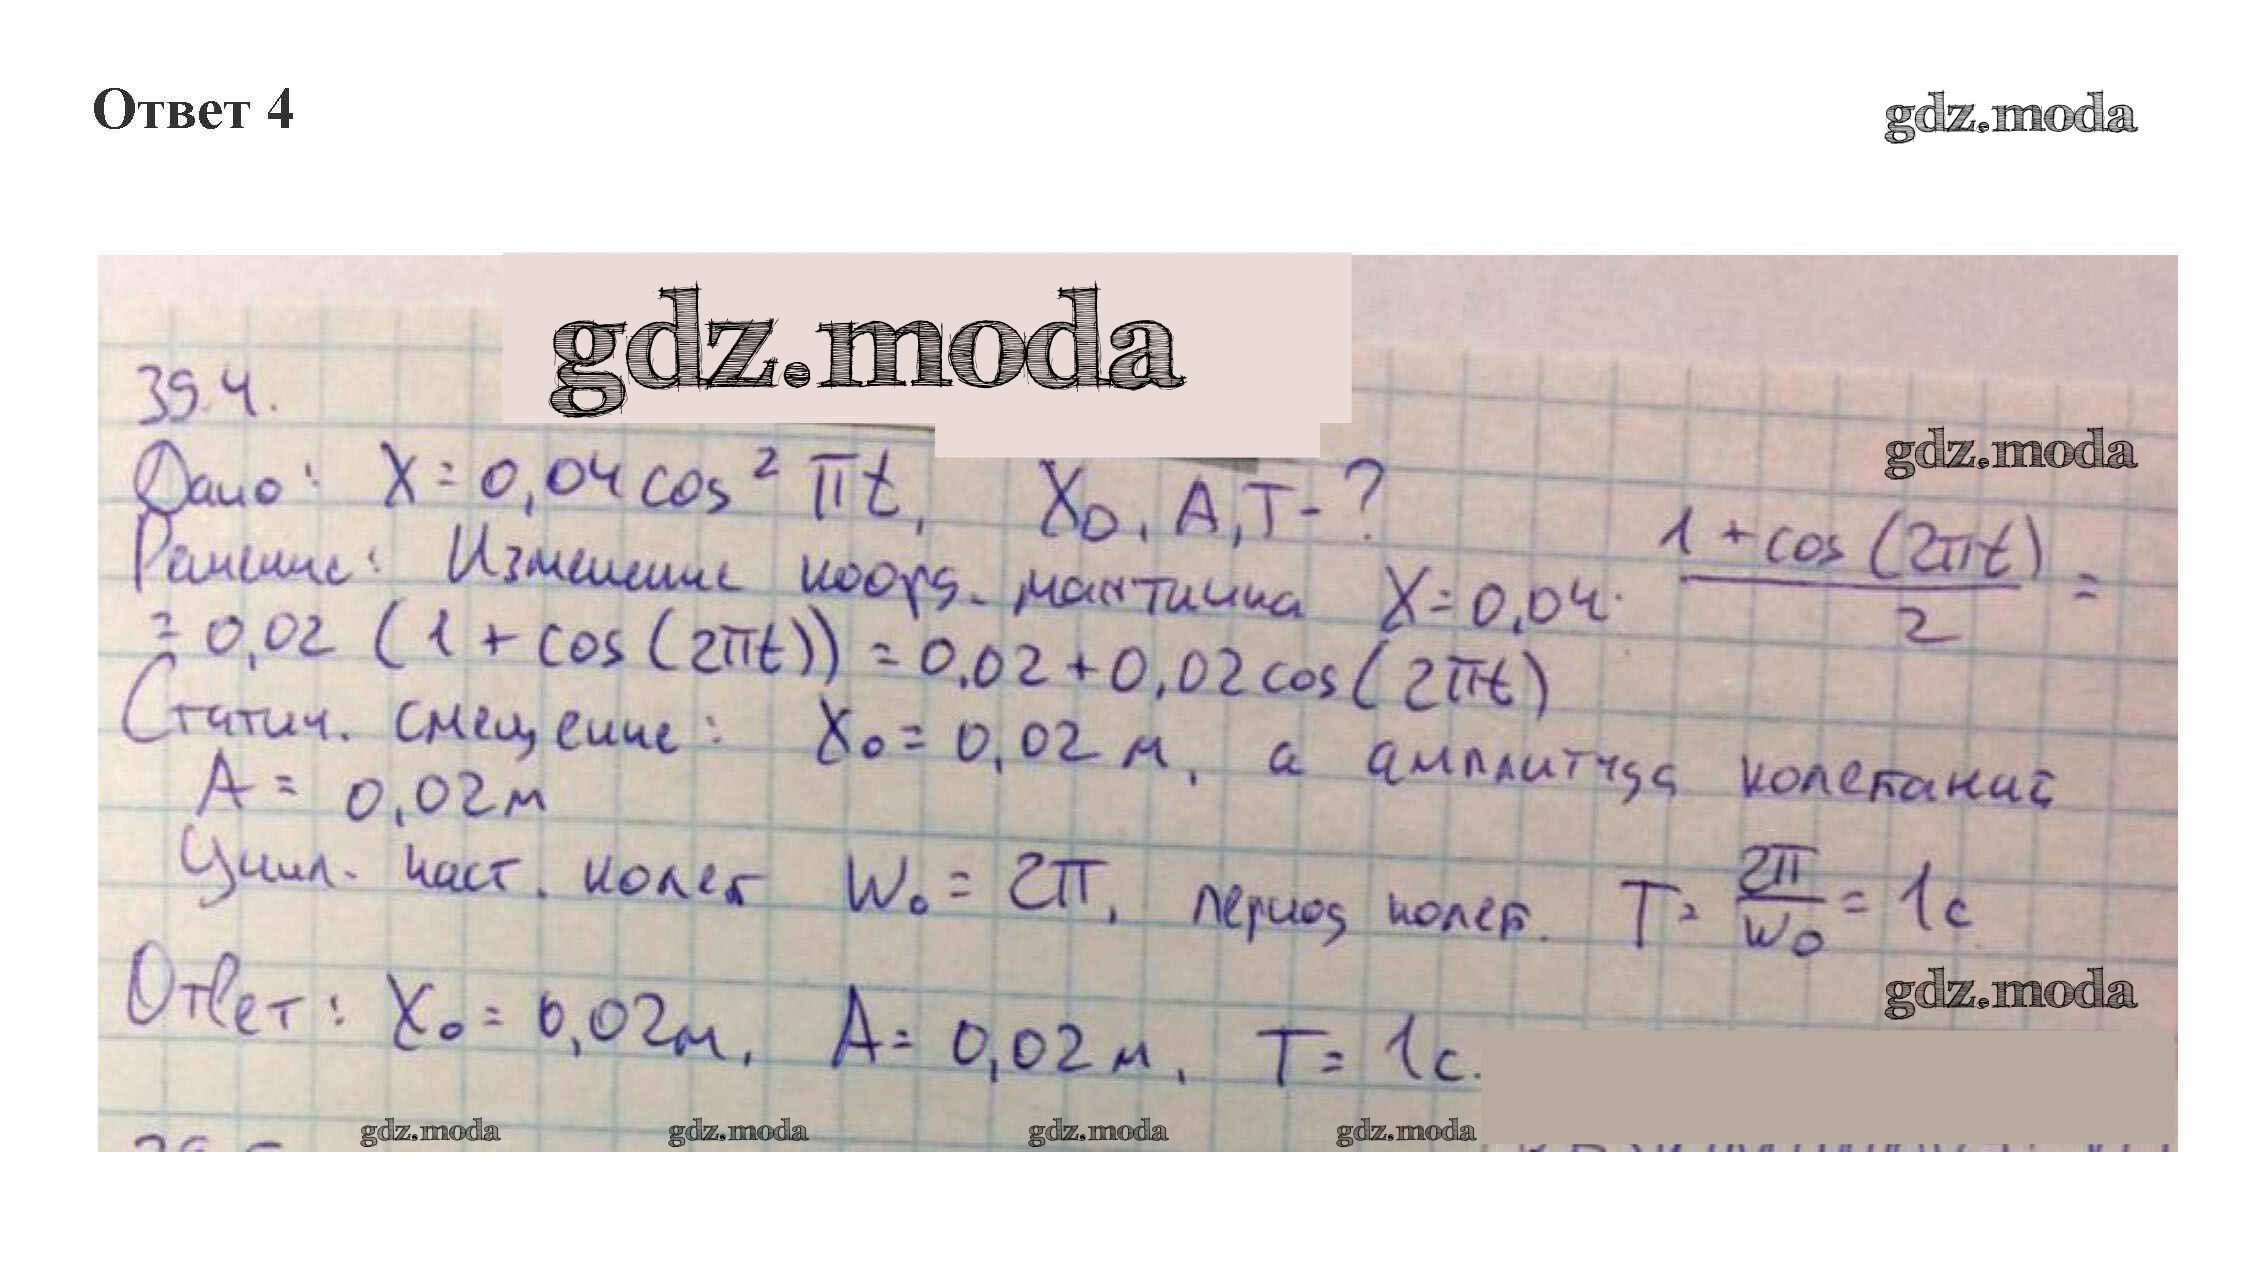 Ответ 4
gdz.moda
gdz.moda
39.4.
gdz.moda
Дано: X = 0,04 cos² πt, X₀, A, T - ?
Решение: Изменение коорд. маятника X = 0,04 · (1 + cos (2πt)) / 2 =
= 0,02 (1 + cos (2πt)) = 0,02 + 0,02 cos (2πt)
Статич. смещение: X₀ = 0,02 м, а амплитуда колебаний
A = 0,02 м
Цикл. част. колеб W₀ = 2π, период колеб. T = 2π / W₀ = 1 с
gdz.moda
Ответ: X₀ = 0,02 м, A = 0,02 м, T = 1 с.
gdz.moda gdz.moda gdz.moda gdz.moda